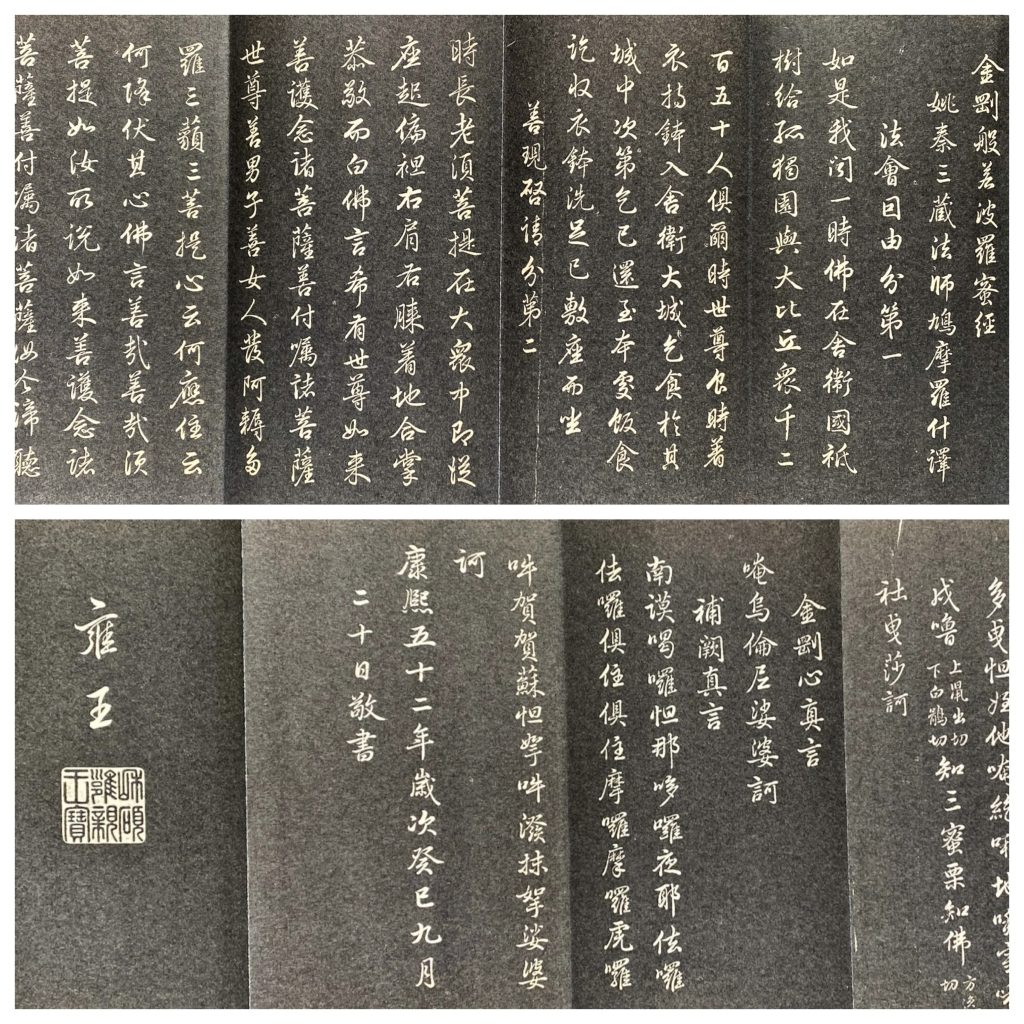 金剛般若波羅蜜經
姚秦三藏法師鳩摩羅什譯
法會因由分第一
如是我聞一時佛在舍衛國祇
樹給孤獨園與大比丘眾千二
百五十人俱爾時世尊食時着
衣持鉢入舍衛大城乞食於其
城中次第乞已還至本處飯食
訖收衣鉢洗足已敷座而坐
善現啓請分第二
時長老須菩提在大眾中即從
座起偏袒右肩右膝着地合掌
恭敬而白佛言希有世尊如来
善護念諸菩薩善付囑諸菩薩
世尊善男子善女人發阿耨多
羅三藐三菩提心云何應住云
何降伏其心佛言善哉善哉須
菩提如汝所説如来善護念諸
菩薩善付囑諸菩薩汝今諦聽
多曳怛姪他唵
戍嚕
上鼠出切
下白鶻切
知三蜜栗知佛
切
社曳莎訶
金剛心真言
唵烏倫尼娑婆訶
補闕真言
南謨喝囉怛那哆囉夜耶佉囉
佉囉俱住俱住摩囉摩囉虎囉
吽賀賀蘇怛拏吽潑抹拏娑婆
訶
康熙五十二年歲次癸巳九月
二十日敬書
雍王
和碩
雍親
王寶